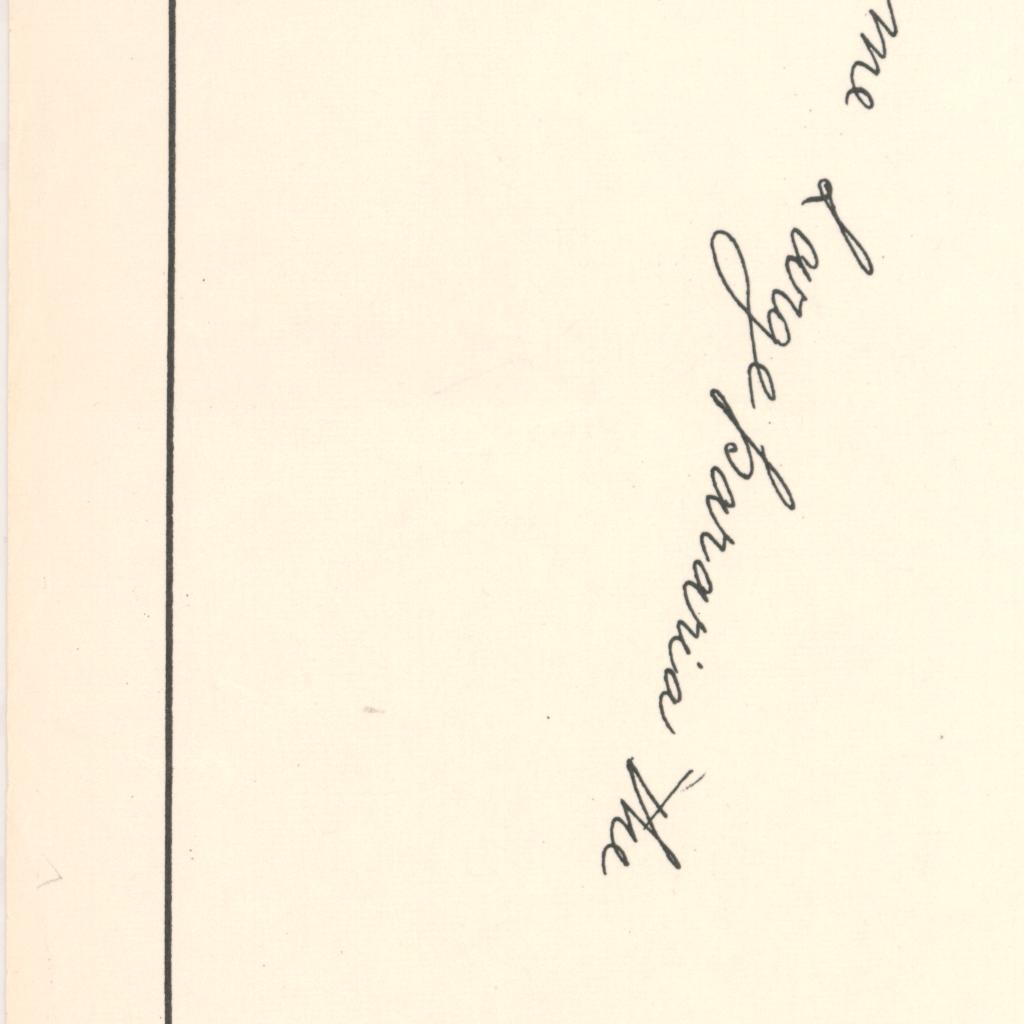 me Large pararia the